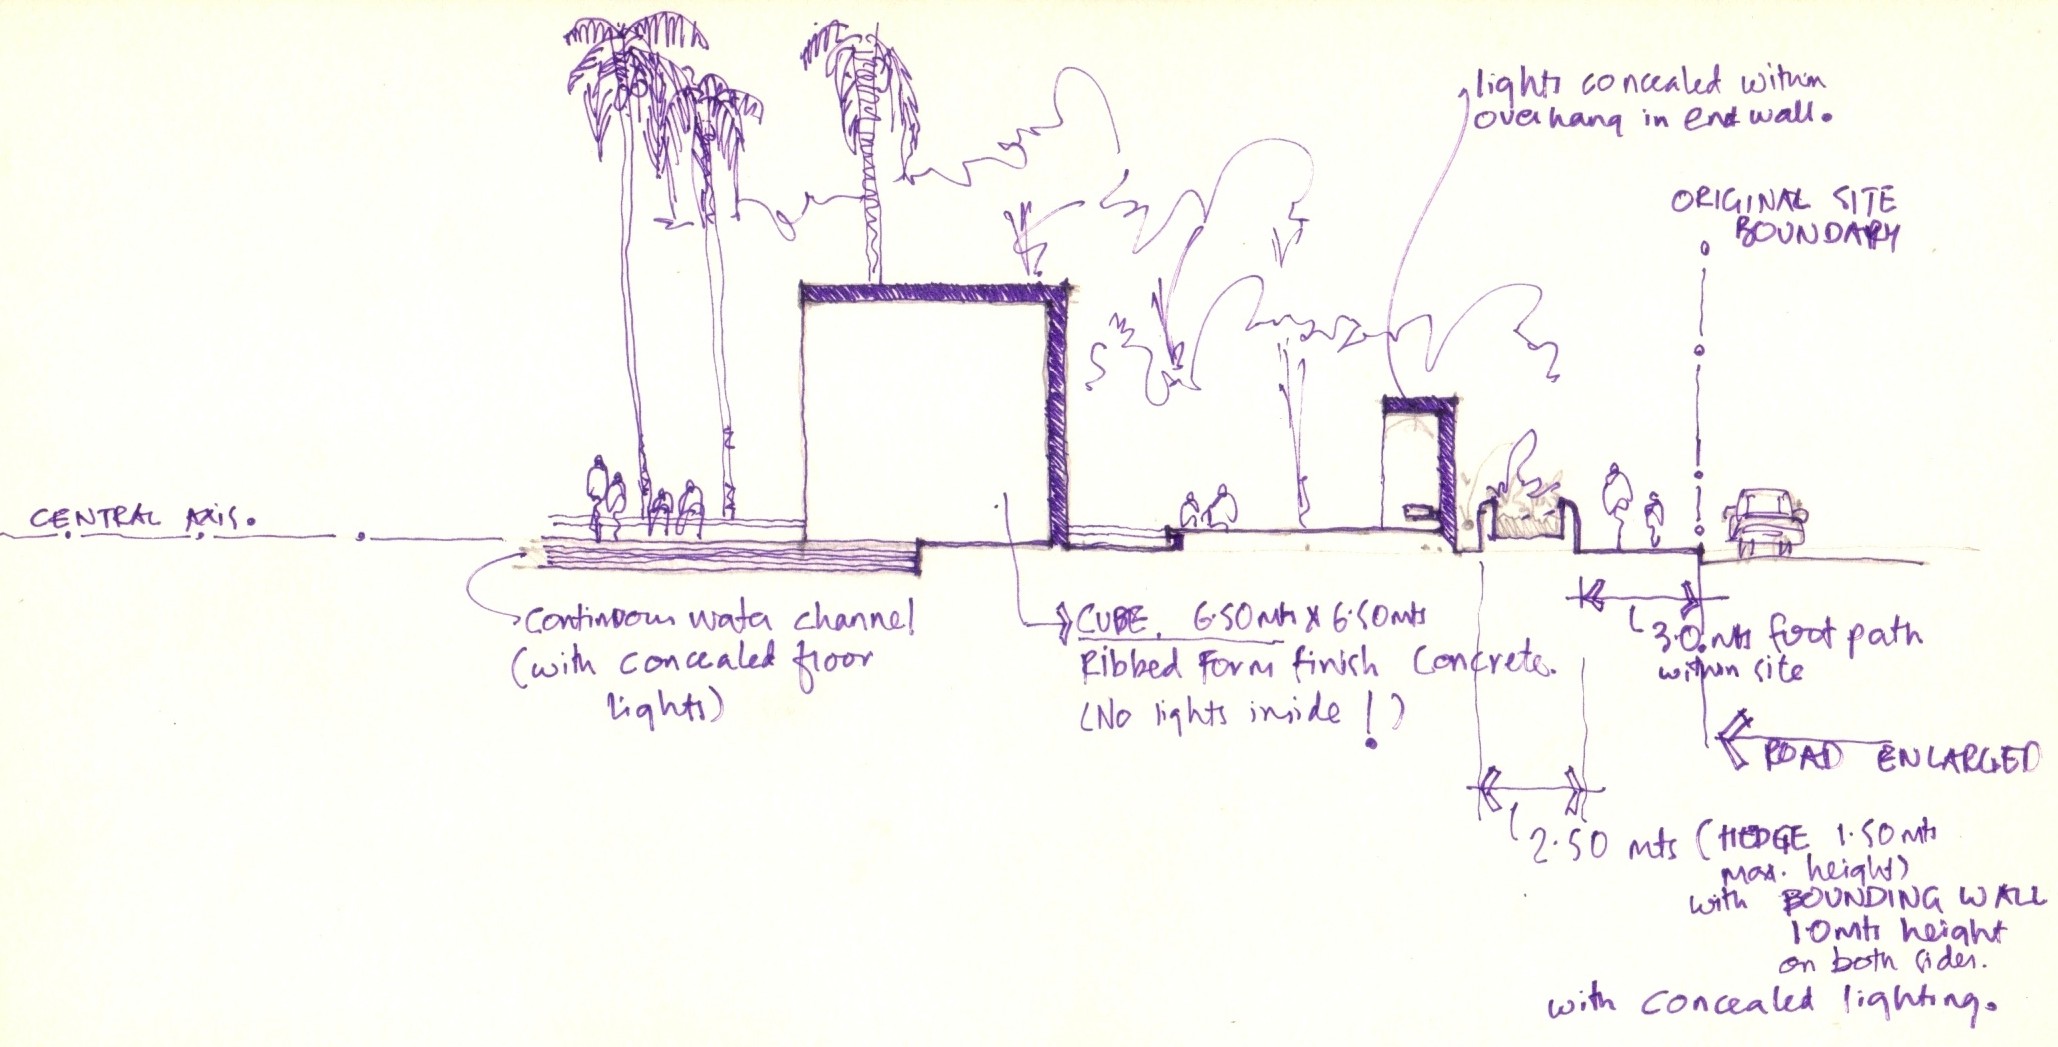 lights concealed within
overhang in end wall.
ORIGINAL SITE
BOUNDARY
CENTRAL AXIS.
Continuous water channel
(with concealed floor
lights)
CUBE. 6.50mts x 6.50mts
Ribbed Form finish Concrete.
(No lights inside!)
3.0.mts foot path
within site
ROAD ENLARGED
2.50 mts (HEDGE 1.50mts
max. height)
with BOUNDING WALL
1.0mts height
on both sides.
with concealed lighting.